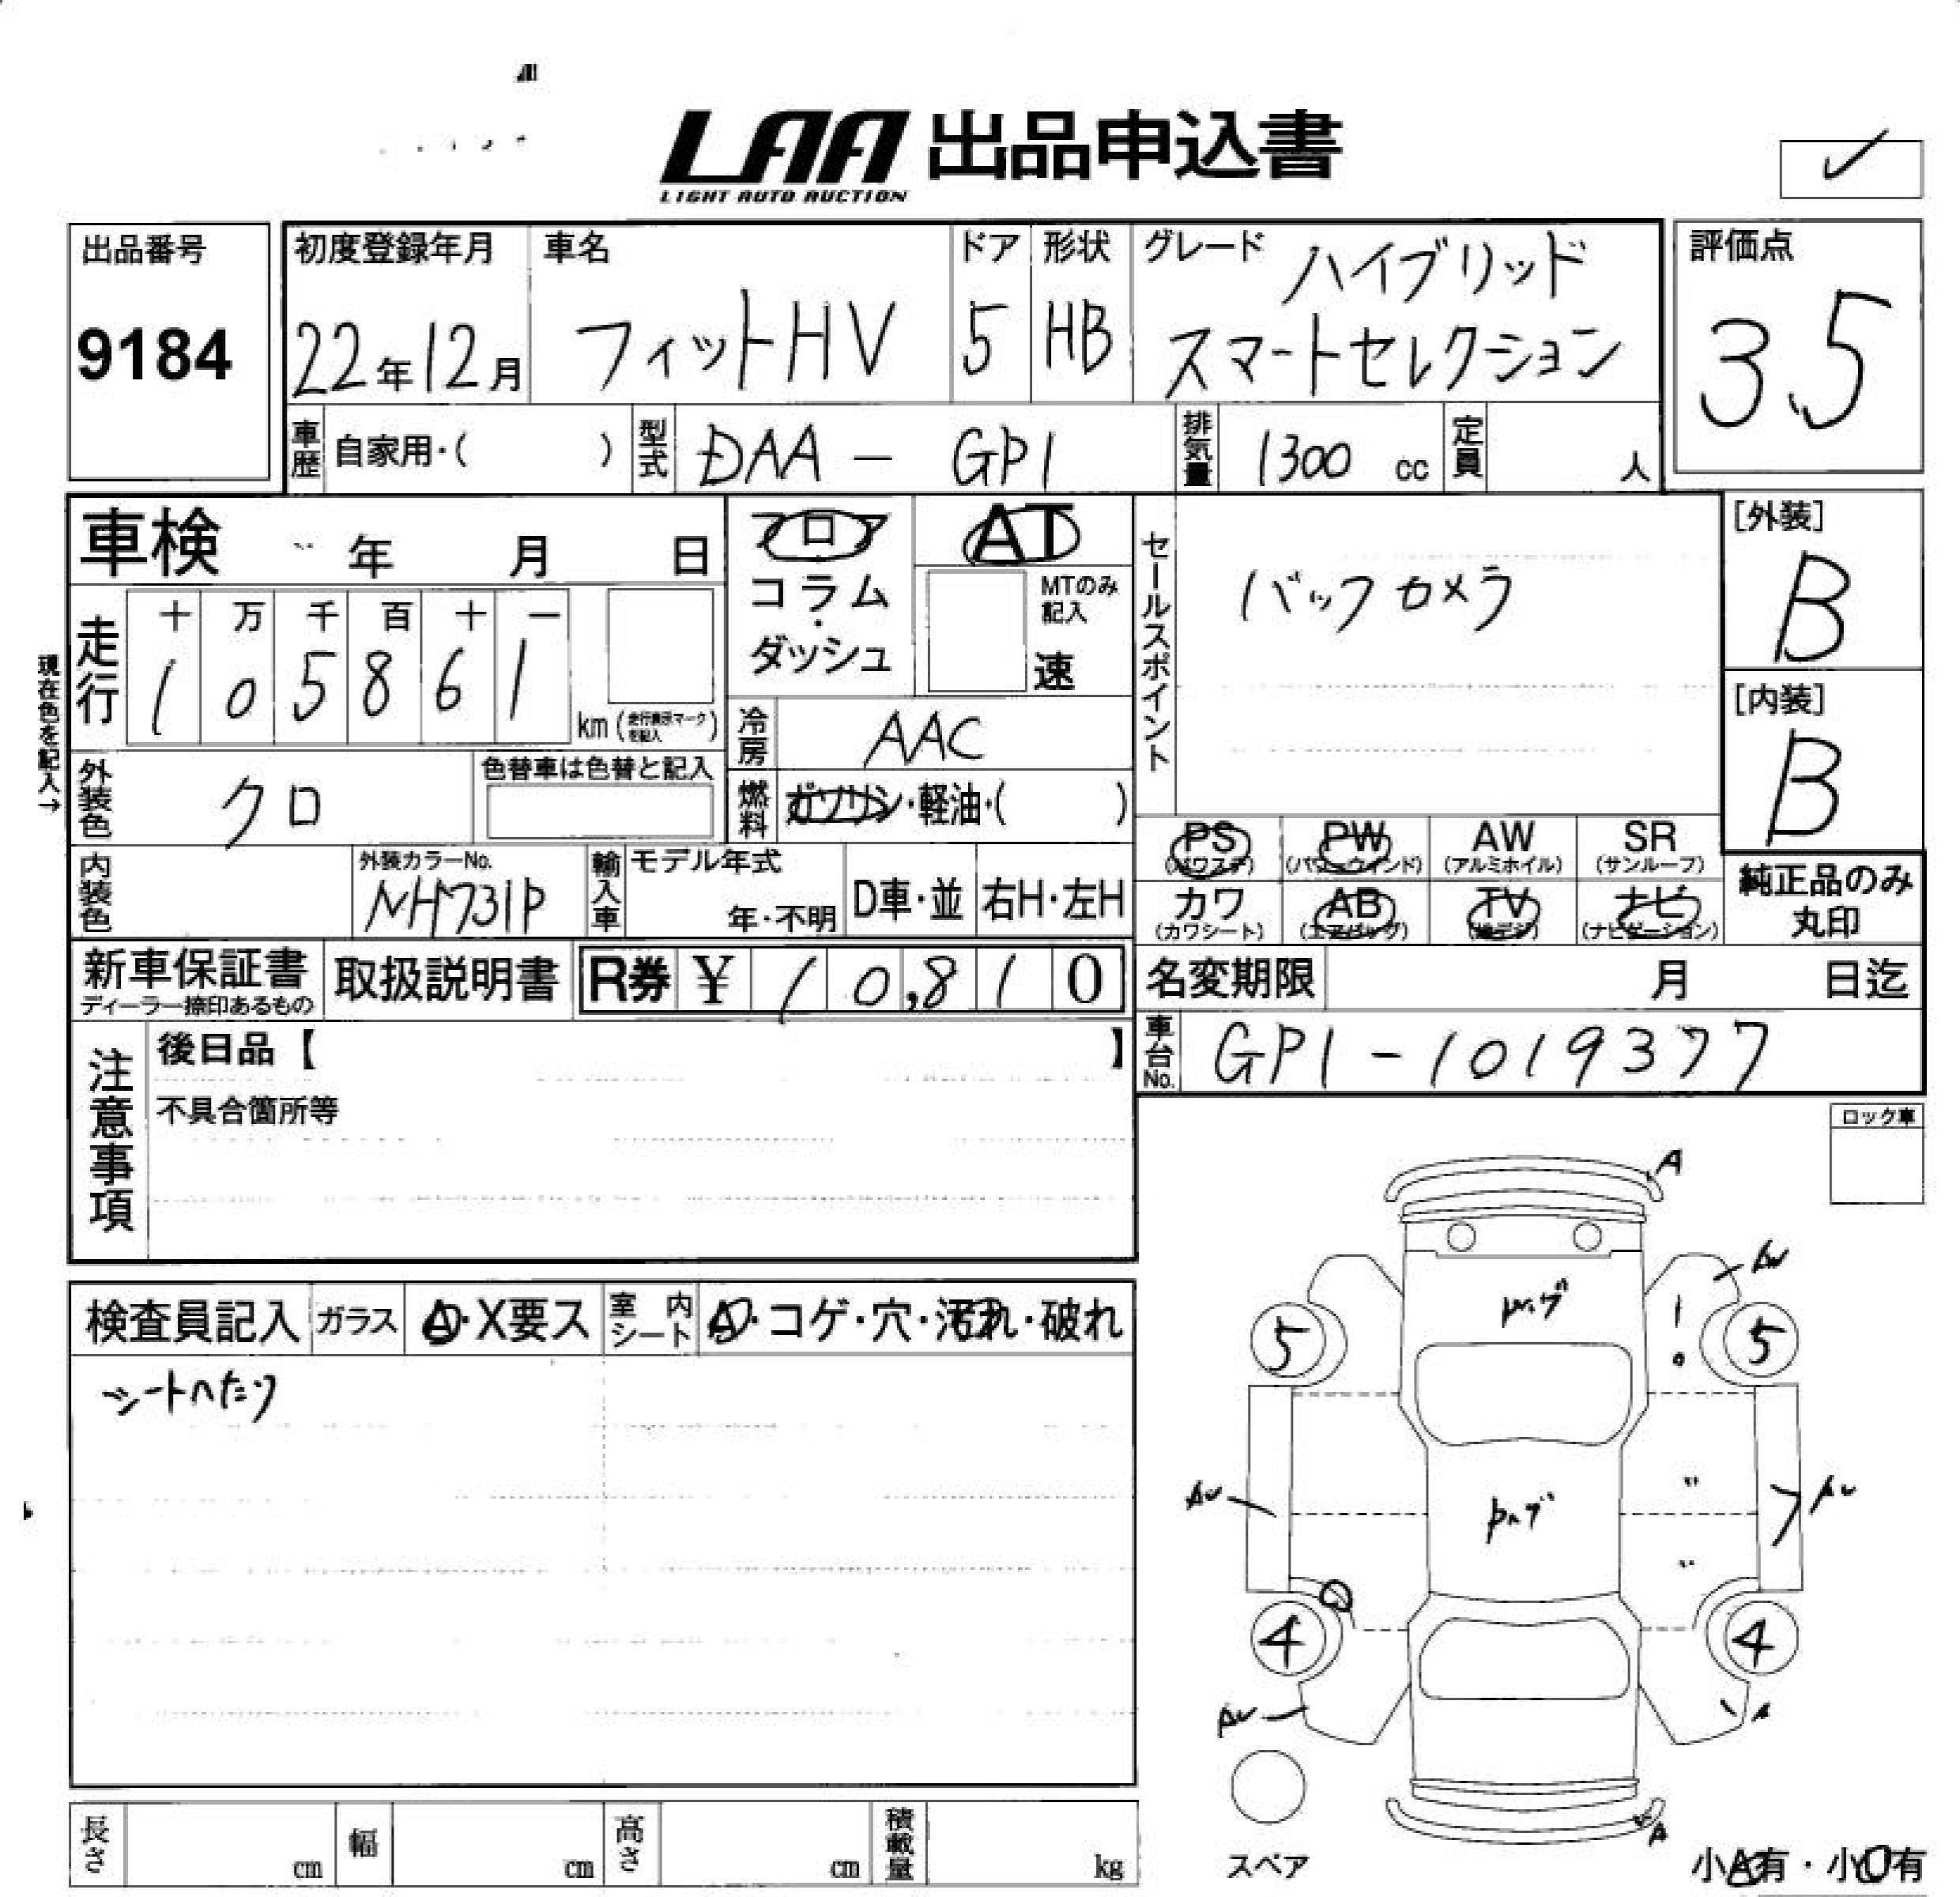 LAA 出品申込書
LIGHT AUTO AUCTION
出品番号
9184
初度登録年月
22年12月
車名
フィットHV
ドア
5
形状
HB
グレード ハイブリッド
スマートセレクション
評価点
3.5
車歴 自家用・( )
型式 DAA - GP1
排気量 1300 cc
定員 人
車検 年 月 日
フロア
・
コラム
・
ダッシュ
AT
MTのみ
記入
速
セールスポイント
バックカメラ
[外装]
B
[内装]
B
現在色を記入→
走行
十 万 千 百 十 一
1 0 5 8 6 1
km (走行表示マークを記入)
冷房 AAC
燃料 ガソリン・軽油・( )
外装色 クロ
色替車は色替と記入
内装色
外装カラーNo.
NH731P
輸入車
モデル年式
年・不明
D車・並
右H・左H
PS PW AW SR
(パワステ) (パワーウィンド) (アルミホイル) (サンルーフ)
カワ AB TV ナビ
(カワシート) (エアバッグ) (地デジ) (ナビゲーション)
純正品のみ
丸印
新車保証書
ディーラー捺印あるもの
取扱説明書
R券 ¥ 10,810
名変期限 月 日迄
車台No. GP1-1019377
注意事項
後日品【 】
不具合箇所等
ロック車
検査員記入 ガラス A・X要ス 室内シート A・コゲ・穴・汚れ・破れ
シートへたり
A
5 5
4 4
A
スペア
小A有・小U有
長さ cm
幅 cm
高さ cm
積載量 kg